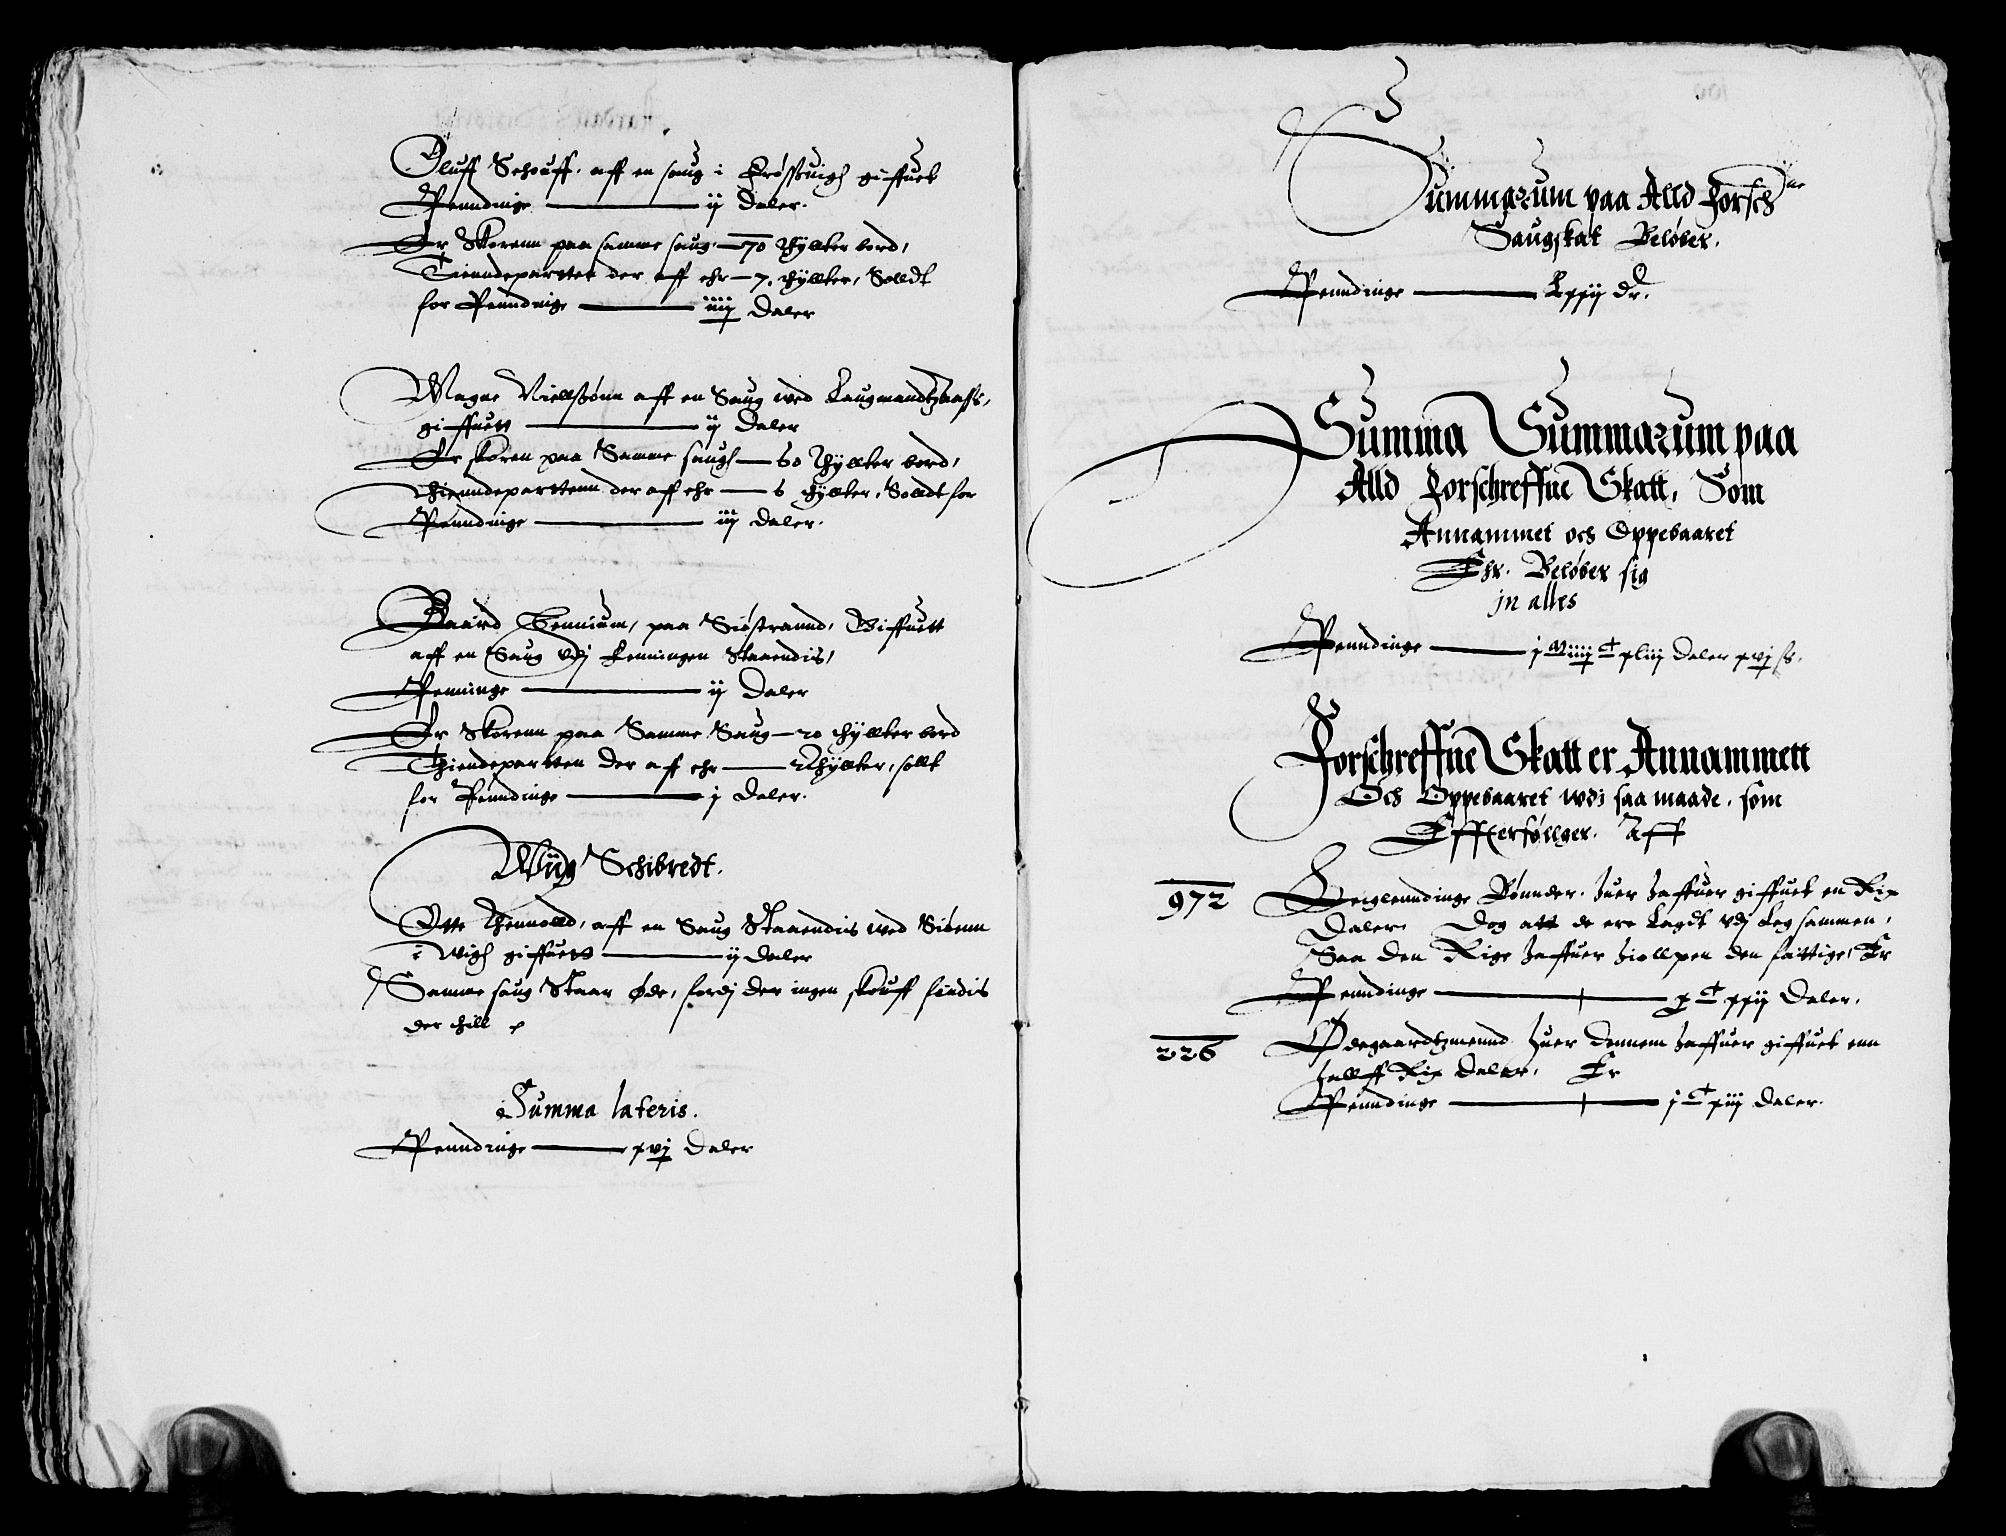 Oluff Schouff, aff en saug i Krøssuigh giffuet
Penndinge ij Daler.
Er Skorenn paa samme saug 70 thylter bord,
Tienndeparttet der aff ehr 7. thylter, Solldt
for Penndinge iiij Daler
Magne Niellssønn aff en Saug wed Laugmandtzaass,
giffuett ij Daler
Er skoren paa Samme saugh 60 thylter bord,
thienndeparttenn der aff ehr 6 thylter, Solldt for
Penndinge iij Daler.
Baard paa Siøstrannd, Giffuett
aff en Saug vdj Kenningen Staaendis,
Penninge ij Daler
Er Skorenn paa Samme Saug 20 thylter bord
Thiendeparten der aff ehr 2 thylter, sollt
for Penndinge j Daler.
Wiig Schibredt.
Otte thennolld, aff en Saug Staaendis wed Siøenn
i Wigh giffuett ij daler
Samme saug Staar Øde, fordj der ingen skouff findis
der thill
Summa lateris.
Penndinge xvj Daler
Summarum paa Alld Forschne
Saugskat Beløber.
Penndinge Lxxij Dr.
Summa Summarum paa
Alld Forschreffne Skatt, Som
Annammet och Oppebaaret
Ehr. Beløber sig
jn alles
Penndinge j M iiij C xliij Daler xvj ss.
Forschreffne Skatt er Annammett
Och Oppebaaret wdj saa maade, som
Effterføllger. Aff
972 Leiglenndinge Bønnder. huer haffuer giffuet en Rix
Daler, Dog att de ere Lagdt vdj Leg sammen,
Saa den Rige haffuer hiollpen den fattige, Er
Penndinge ix C lxxij Daler.
226 Ødegaardtzmennd huer dennem haffuer giffuet enn
hallff Rix daler, Er
Penndinge j C xiij daler.